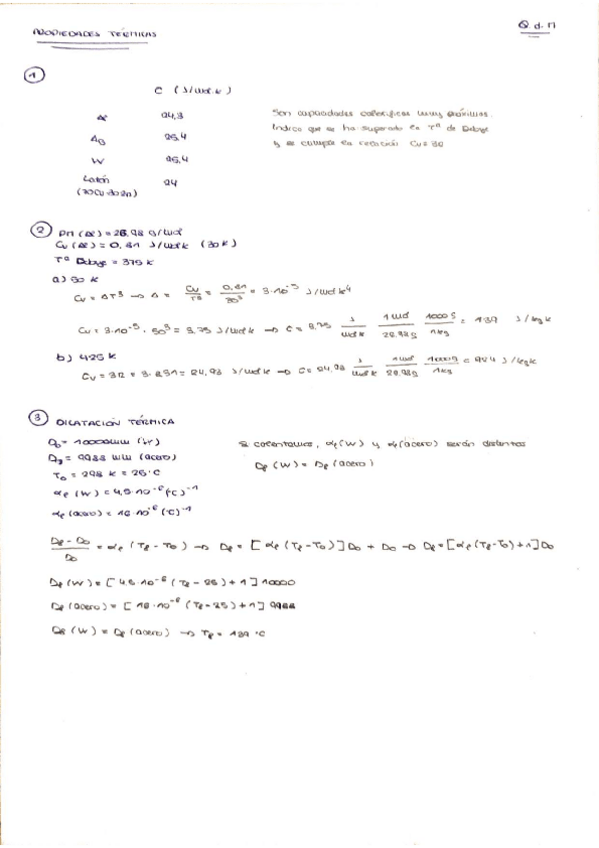 PROPIEDADES TÉRMICAS
Q d. M
1
C (J/mol·k)
Al 24,3
Ag 25,4
W 25,4
Latón 24
(70Cu-30Zn)
Son capacidades caloríficas muy próximas.
Indica que se ha superado la Tª de Debye
y se cumple la relación Cv = 3R
2
PM (Al) = 26,98 g/mol
Cv (Al) = 0,81 J/mol k (30 k)
Tª Debye = 375 k
a) 50 k
Cv = AT³ → A = Cv/T³ = 0,81/30³ = 3·10⁻⁵ J/mol k⁴
Cv = 3·10⁻⁵ · 50³ = 3,75 J/mol k → C = 3,75 J/mol k 1 mol/26,98g 1000g/1kg = 139 J/kg k
b) 425 k
Cv = 3R = 3·8,31 = 24,93 J/mol k → C = 24,93 J/mol k 1 mol/26,98g 1000g/1kg = 924 J/kg k
3 DILATACIÓN TÉRMICA
D₀ = 10000mm (W)
D₀ = 9988 mm (acero)
T₀ = 298 k = 25 °C
αₗ (W) = 4,5·10⁻⁶ (°C)⁻¹
αₗ (acero) = 16·10⁻⁶ (°C)⁻¹
Si calentamos, αₗ(W) y αₗ(acero) serán distintos
Df (W) = Df (acero)
Df - D₀/D₀ = αₗ (Tf - T₀) → Df = [αₗ (Tf - T₀)] D₀ + D₀ → Df = [αₗ (Tf - T₀) + 1] D₀
Df (W) = [4,5·10⁻⁶ (Tf - 25) + 1] 10000
Df (acero) = [16·10⁻⁶ (Tf - 25) + 1] 9988
Df (W) = Df (acero) → Tf = 129 °C